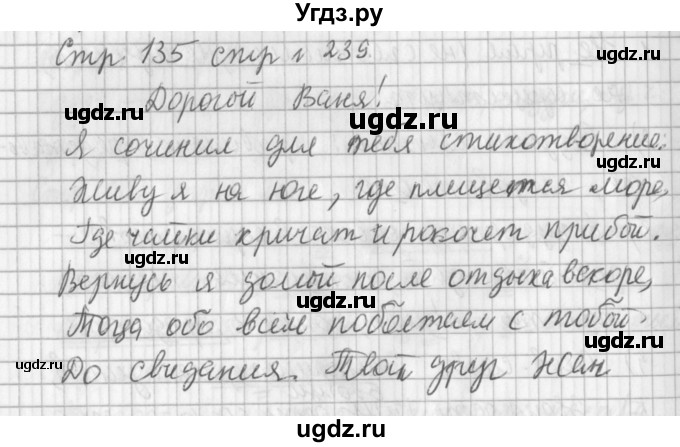 Угдз.ру
Стр 135 стр 1 239.
Дорогой Ваня!
ugdz.ru ugdz.ru
Я сочинил для тебя стихотворение:
ugdz.ru
Живу я на юге, где плещется море,
ugdz.ru ugdz.ru
Где чайки кричат и рокочет прибой.
ugdz.ru
Вернусь я домой после отдыха вскоре,
ugdz.ru ugdz.ru
Тогда обо всём поболтаем с тобой.
ugdz.ru ugdz.ru
До свидания. Твой друг Жан
ugdz.ru ugdz.ru
ugdz.ru